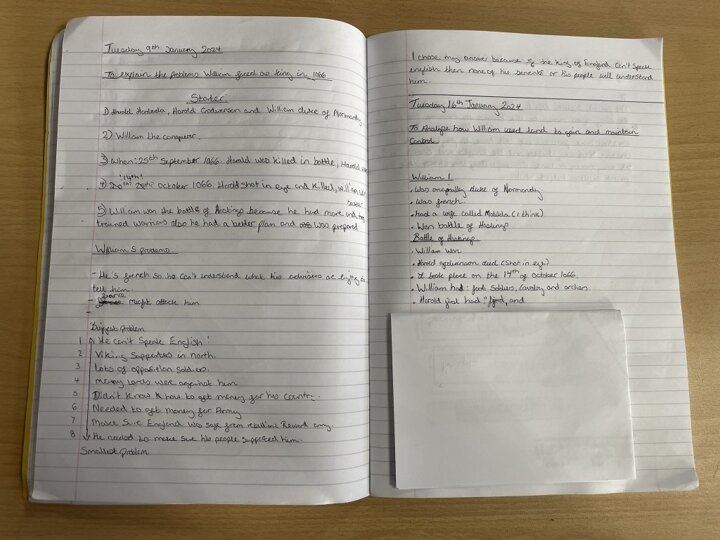 Tuesday 9th January 2024
To explain the problems William faced as king in 1066
Starter
1) Harald Hardrada, Harold Godwinson and William duke of Normandy
2) William the conqueror.
3) When: 25th September 1066. Harald was killed in battle, Harald
4) 14th October 1066. Harold shot in eye and killed, William
5) William won the battle of Hastings because he had more and
trained warriors also he had a better plan and was prepared
William's problems
- He's french so he can't understand what his advisors are trying to
tell him.
- might attack him
-
Biggest problem
1 He can't speak English!
2 Viking Supporters in north.
3 Lots of opposition soldiers.
4 many Lords were against him
5 Didn't know how to get money for his country.
6 Needed to get money for Army
7 Make Sure England was safe from rebellions army.
8 He needed to make sure his people supported him.
Smallest problem
I chose my answer because if the king of England can't speak
english then none of his servants or his people will understand
him.
Tuesday 16th January 2024
To Analyse how William used land to gain and maintain
Control
William 1
• Was originally duke of Normandy
• Was french
• had a wife called Matilda (I think)
• Won battle of Hastings
Battle of Hastings
• William Won
• Harold godwinson died (Shot in eye)
• It took place on the 14th of october 1066.
• William had: foot soldiers, Cavalry and archers
• Harold just had "fyrd, and